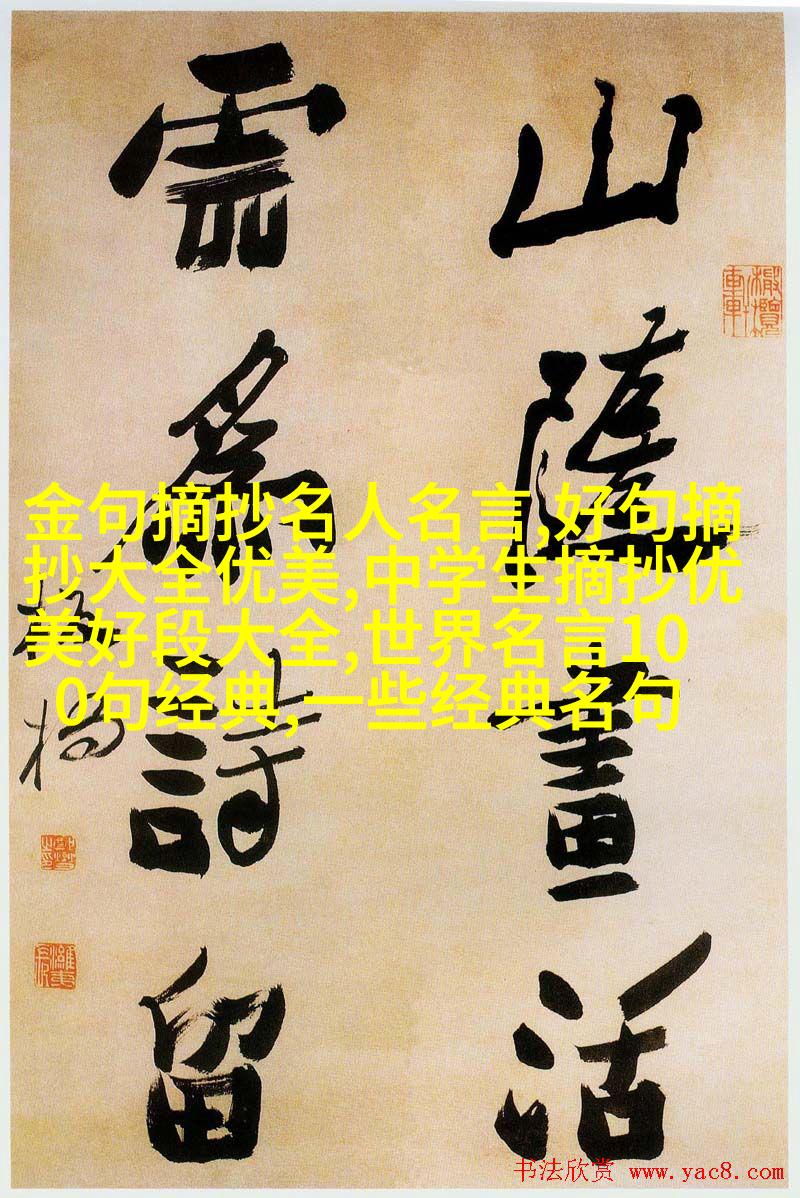 山隨畫活
雲爲詩留
板橋
金句摘抄名人名言,好句摘
抄大全优美,中学生摘抄优
美好段大全,世界名言10
0句经典,一些经典名句
书法欣赏 www.yac8.com